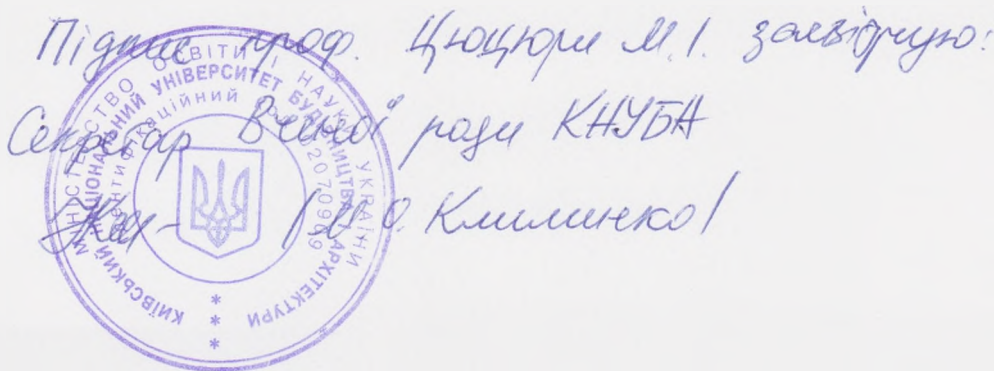 Підпис проф. Цюцюри М.І. засвідчую:
Секретар Вченої ради КНУБА
/М.О. Климиenko/
МІНІСТЕРСТВО ОСВІТИ І НАУКИ УКРАЇНИ
КИЇВСЬКИЙ НАЦІОНАЛЬНИЙ УНІВЕРСИТЕТ БУДІВНИЦТВА І АРХІТЕКТУРИ
ідентифікаційний код 02070909
* * *